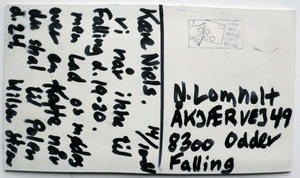 Kære Niels.
vi når ihkke til
Falling d. 19-20.
men lad os mødes
over en Kaffe når
du skal til Polen
d. 24.
N. Lomholt
ÅKJÆRVEJ 49
8300 Odder
Falling